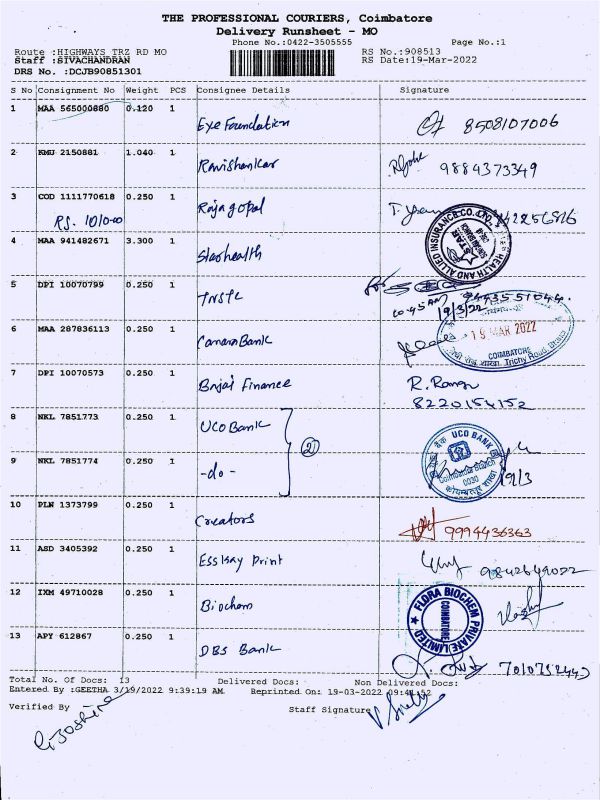 THE PROFESSIONAL COURIERS, Coimbatore
Delivery Runsheet - MO
Phone No.:0422-3505555 Page No.:1
Route :HIGHWAYS TRZ RD MO RS No.:908513
Staff :SIVACHANDRAN RS Date:19-Mar-2022
DRS No. :DCJB90851301
S No Consignment No Weight PCS Consignee Details Signature
1 MAA 565000880 0.120 1 Eye Foundation 8508107006
2 KMU 2150881 1.040 1 Ravishankar 9884373349
3 COD 1111770618 0.250 1 Rajagopal
RS. 1010-00
4 MAA 941482671 3.300 1 Starhealth
STAR HEALTH AND ALLIED INSURANCE CO. LTD.
5 DPI 10070799 0.250 1 TNSTC
10.45 AM 19/3/22 9443551044.
6 MAA 287836113 0.250 1 Canara Bank
19 MAR 2022
COIMBATORE
Trichy Road
7 DPI 10070573 0.250 1 Bajaj Finance R. Raman
8220154152
8 NKL 7851773 0.250 1 UCO Bank
2
9 NKL 7851774 0.250 1 -do-
UCO BANK
यूको बैंक
Coimbatore Branch
0030
19/3
10 PLN 1373799 0.250 1 Creators 9994436363
11 ASD 3405392 0.250 1 Esskay Print 9842649022
12 IXM 49710028 0.250 1 Biochem
FLORA BIOCHEM PRIVATE LIMITED
COIMBATORE
13 APY 612867 0.250 1 DBS Bank
Total No. Of Docs: 13 Delivered Docs: Non Delivered Docs:
Entered By :GEETHA 3/19/2022 9:39:19 AM Reprinted On: 19-03-2022 09:41:52
Verified By Staff Signature